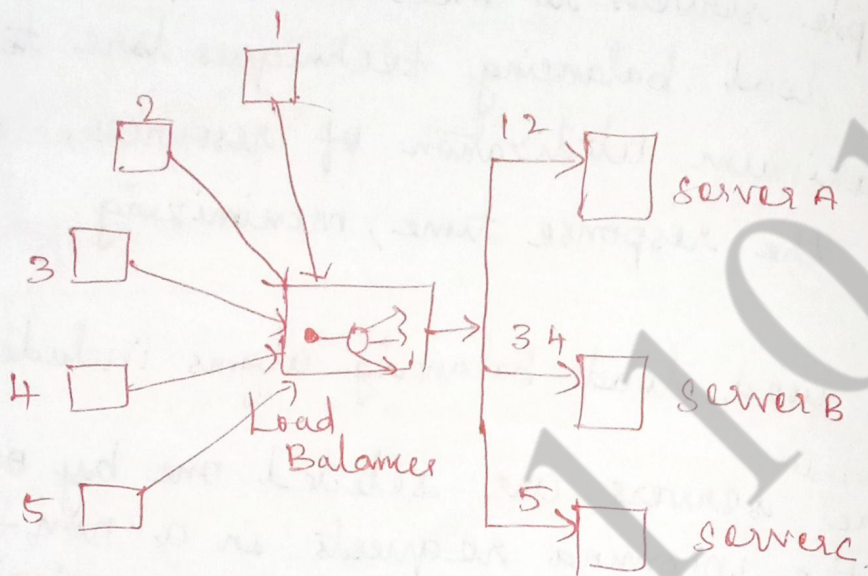 1
2
3
4
5
Load
Balancer
1 2
Server A
3 4
Server B
5
Server C.
110